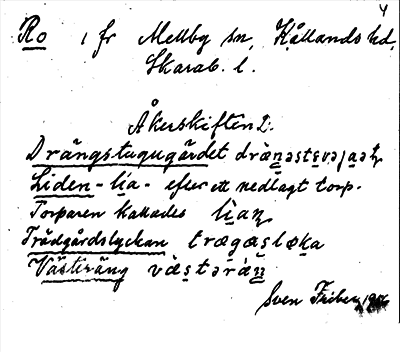 4
Ro 1 fr Mellby sn, Kållands hd,
Skarab. l.
Åkerskiften 2:
Drängstugugärdet
Liden - lia - efter ett nedlagt torp.
Torparen kallades
Trädgårdslyckan trægasløka
Västeräng västerän
Sven Friberg